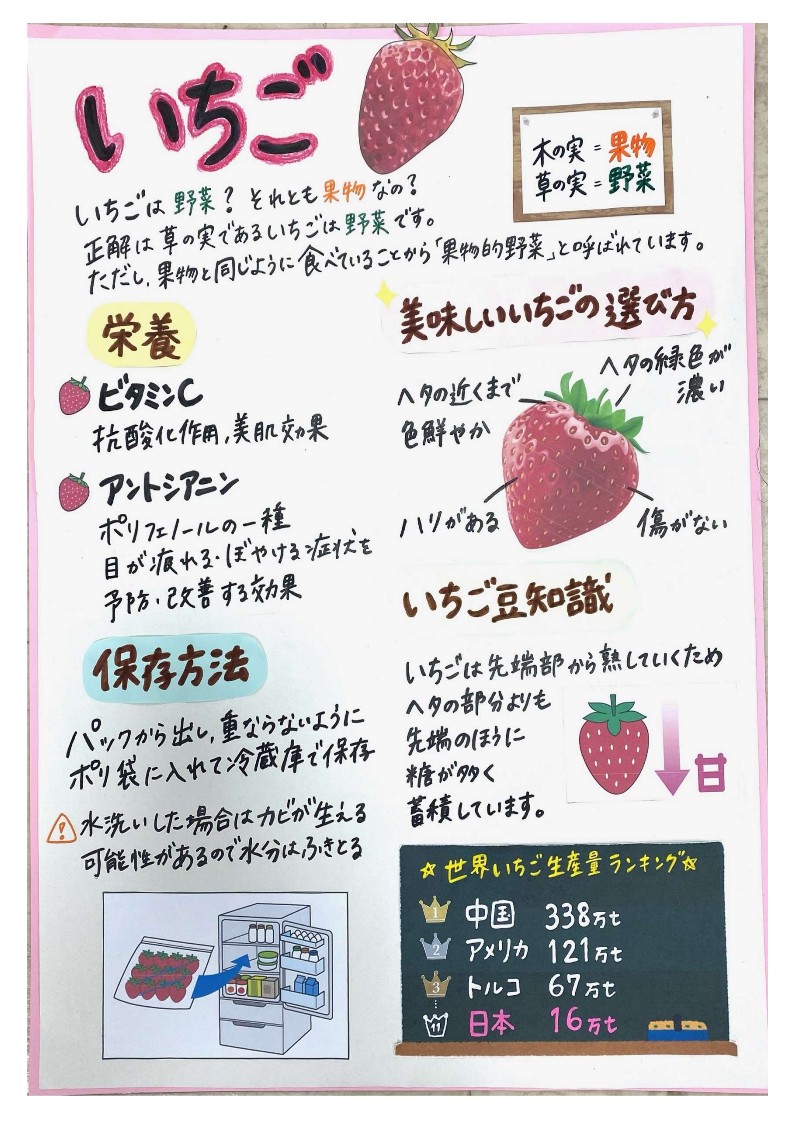 いちご
木の実 = 果物
草の実 = 野菜
いちごは野菜？それとも果物なの？
正解は草の実であるいちごは野菜です。
ただし、果物と同じように食べていることから「果物的野菜」と呼ばれています。
栄養
ビタミンC
抗酸化作用,美肌効果
アントシアニン
ポリフェノールの一種
目が疲れる・ぼやける症状を
予防・改善する効果
保存方法
パックから出し,重ならないように
ポリ袋に入れて冷蔵庫で保存
水洗いした場合はカビが生える
可能性があるので水分はふきとる
美味しいいちごの選び方
ヘタの近くまで
色鮮やか
ヘタの緑色が
濃い
ハリがある
傷がない
いちご豆知識
いちごは先端部から熟していくため
ヘタの部分よりも
先端のほうに
糖が多く
蓄積しています。
甘
☆世界いちご生産量ランキング☆
1 中国 338万t
2 アメリカ 121万t
3 トルコ 67万t
11 日本 16万t